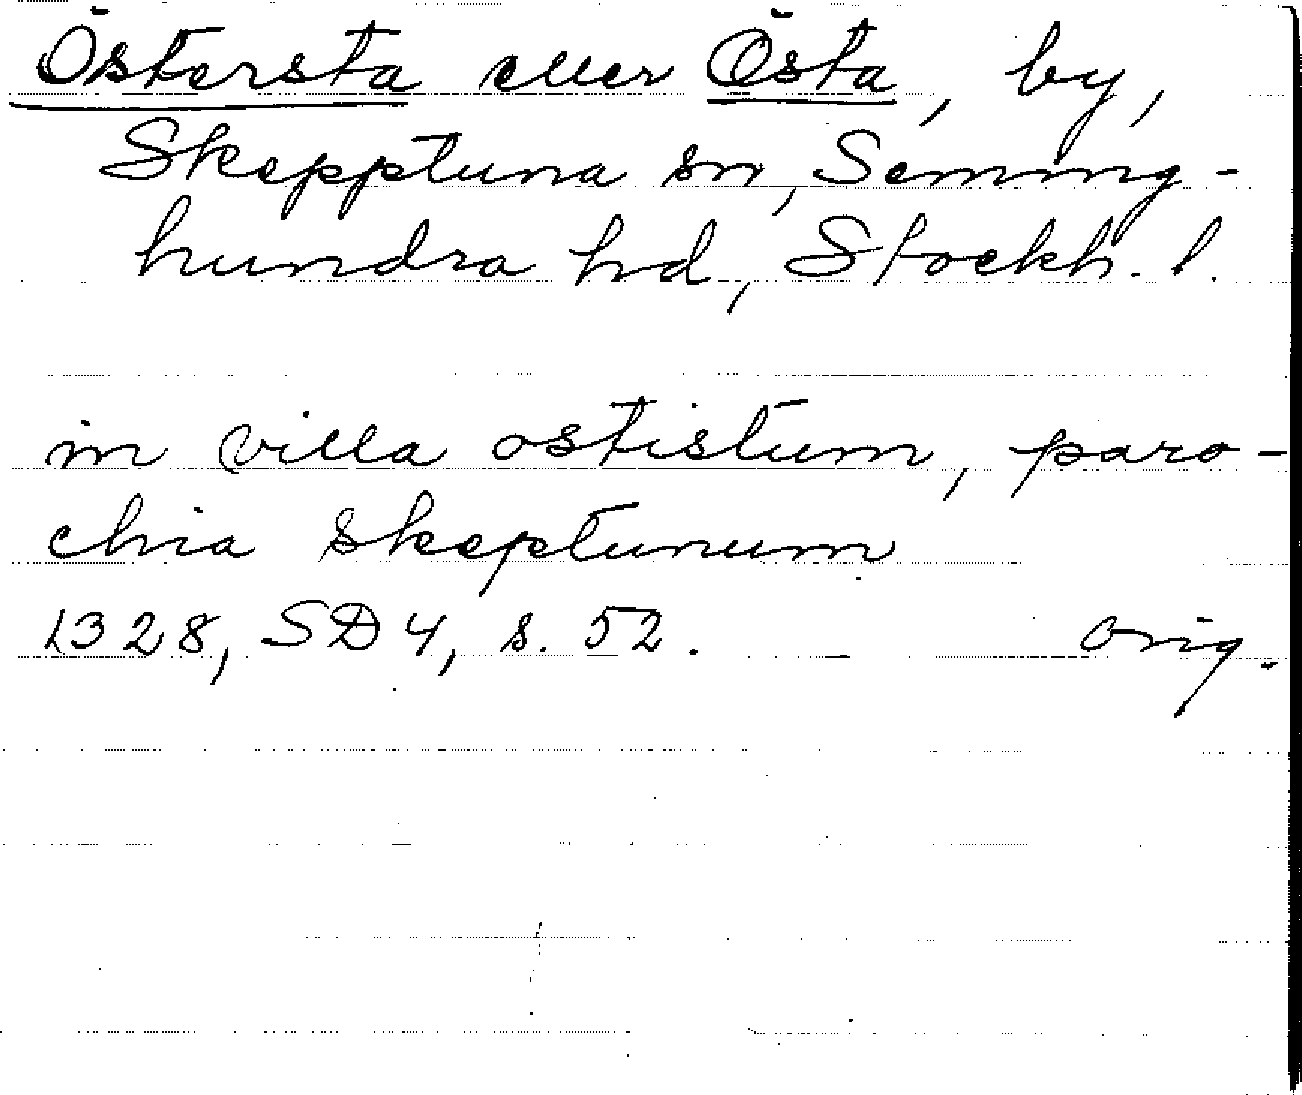 Östersta eller Östa, by,
Skepptuna sn, Seming-
hundra hd, Stockh. l.
in villa ostistum, paro-
chia skeptunum
1328, SD 4, s. 52. orig.